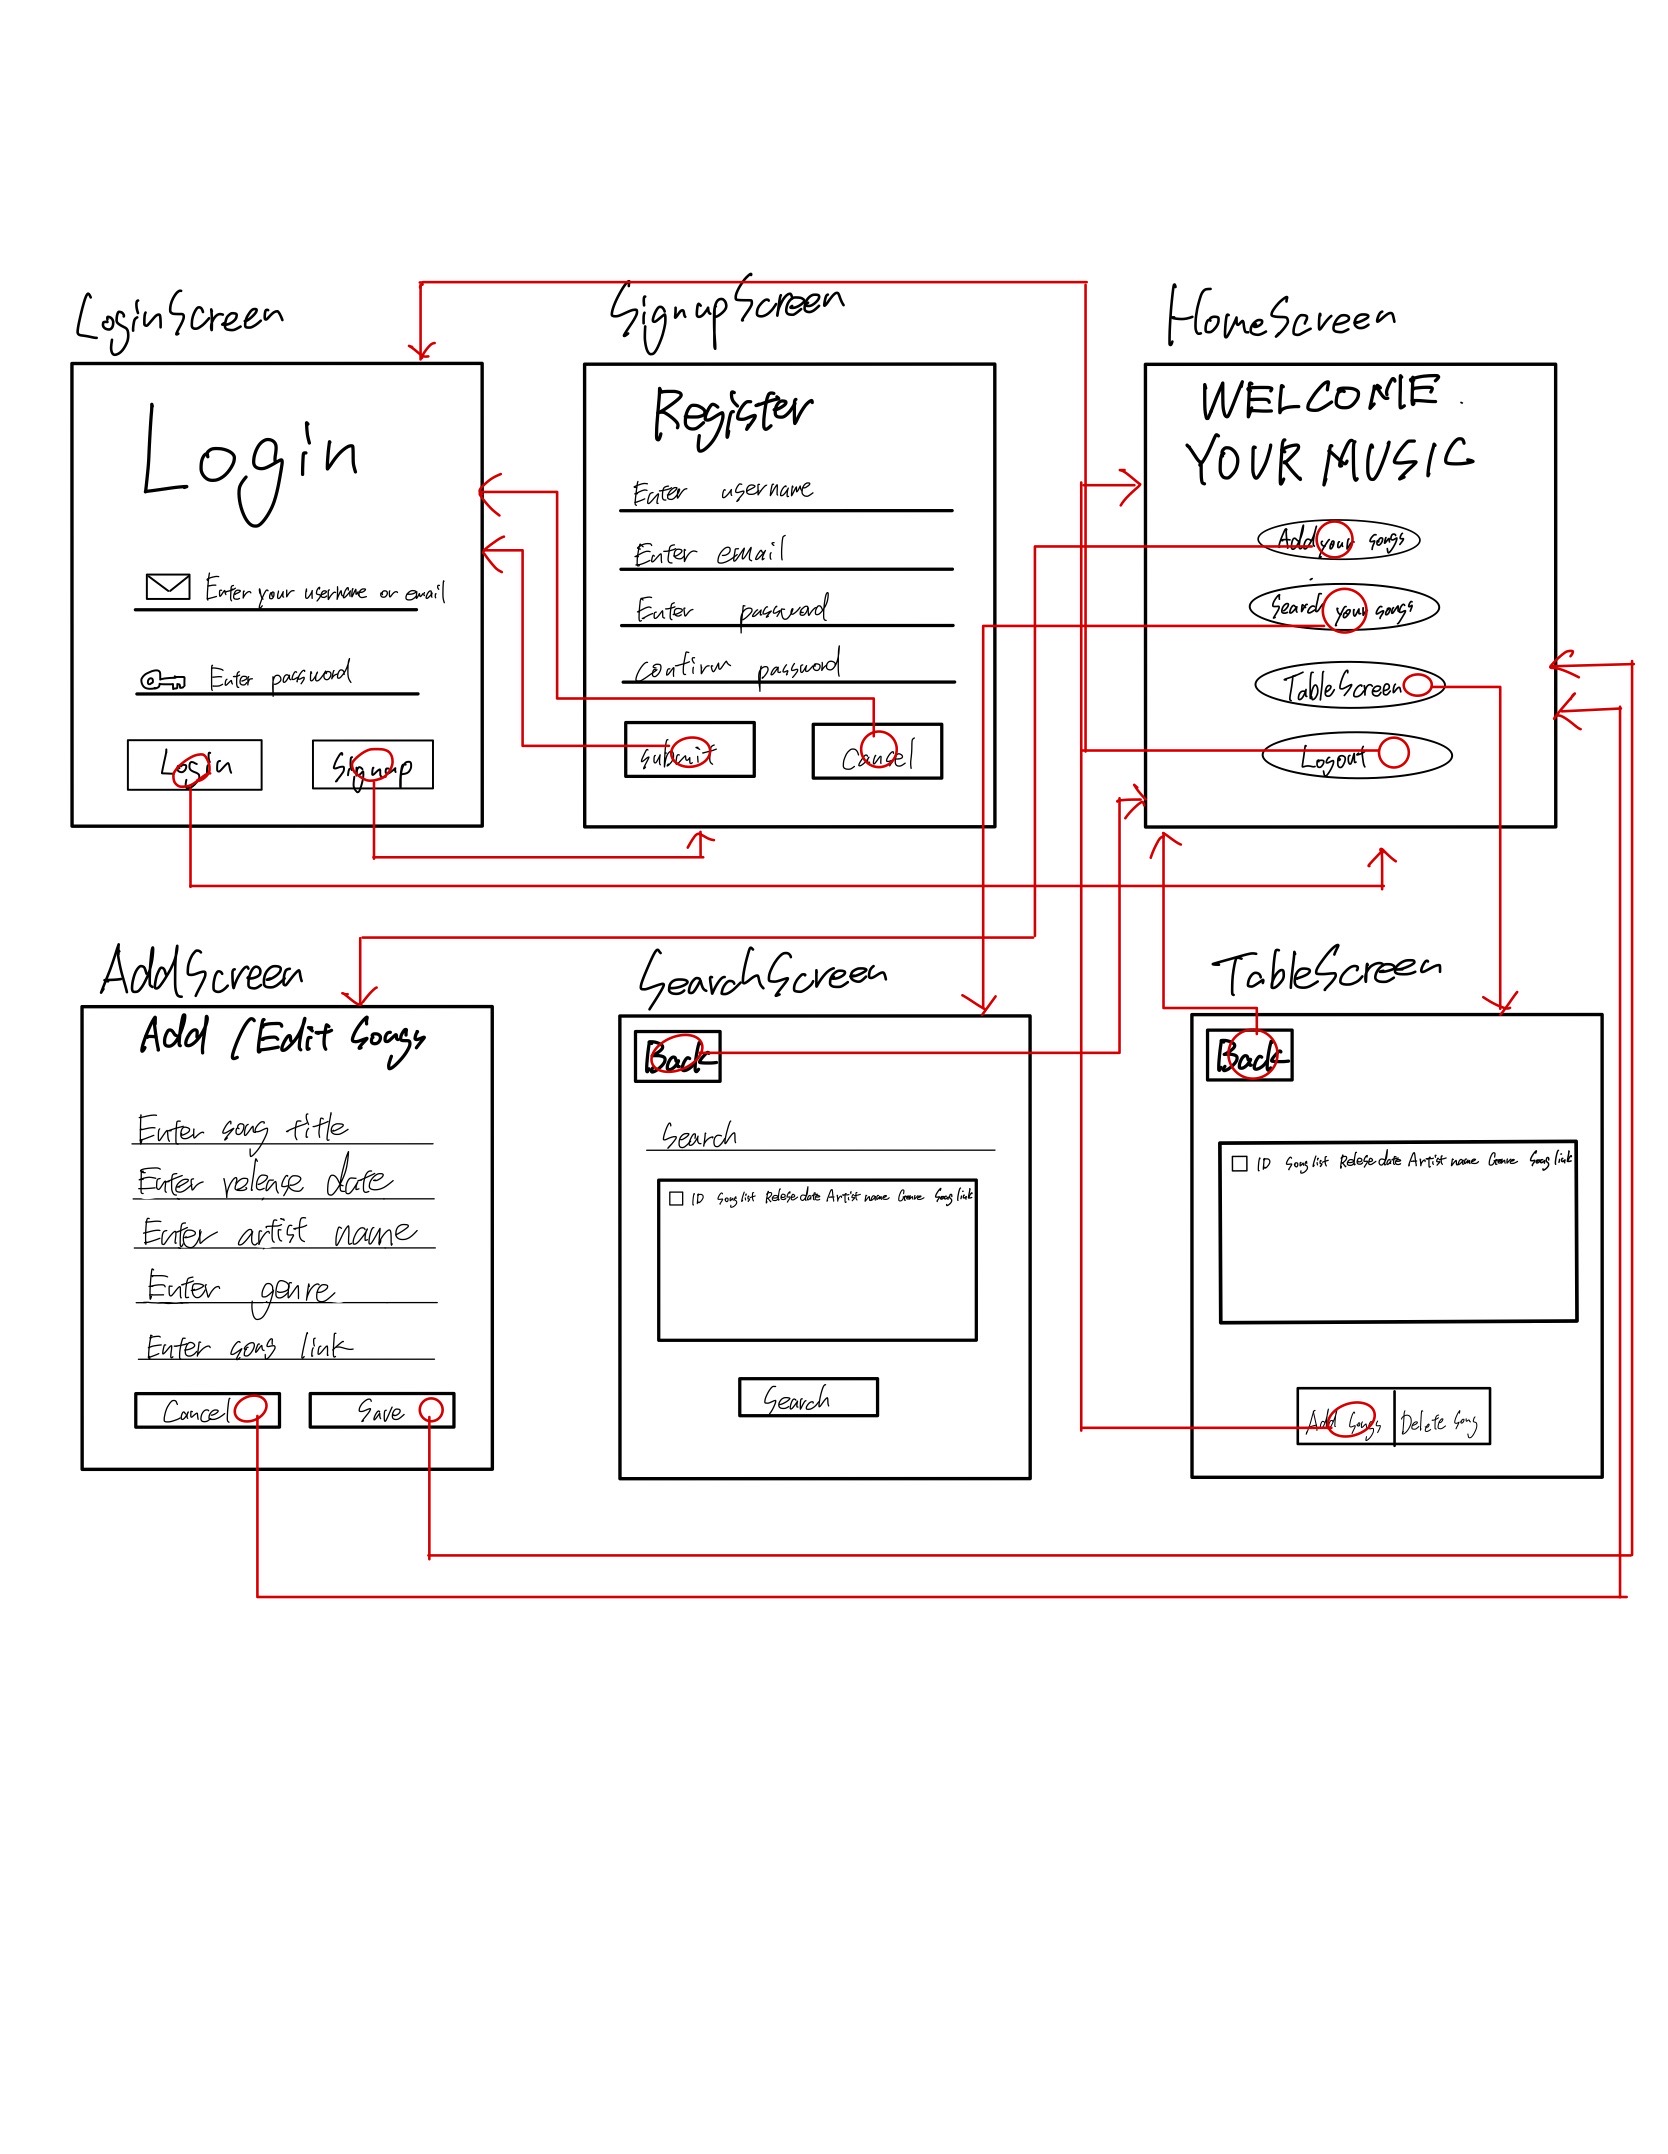 LoginScreen
Login
Enter your username or email
Enter password
Login Signup
SignupScreen
Register
Enter username
Enter email
Enter password
Confirm password
submit Cancel
HomeScreen
WELCOME
YOUR MUSIC
Add your songs
Search your songs
TableScreen
Logout
AddScreen
Add / Edit Songs
Enter song title
Enter release date
Enter artist name
Enter genre
Enter song link
Cancel Save
SearchScreen
Back
Search
ID Song list Relese date Artist name Genre Song link
Search
TableScreen
Back
ID Song list Relese date Artist name Genre Song link
Add Songs Delete Song